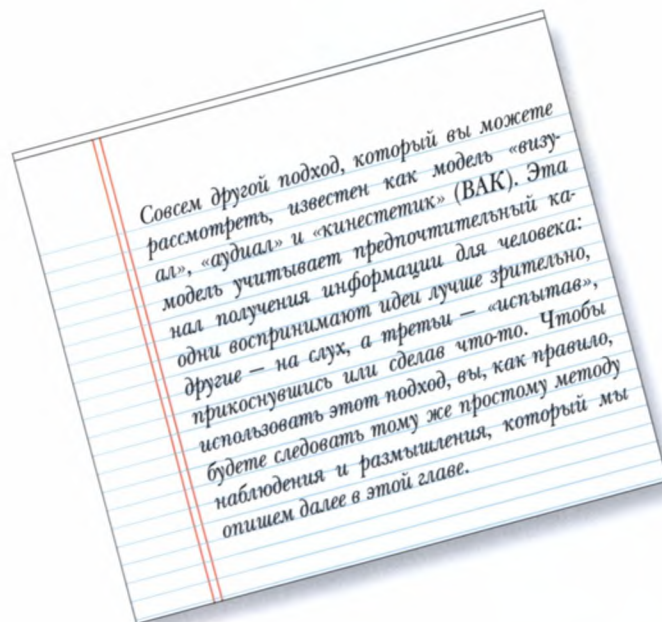 Совсем другой подход, который вы можете
рассмотреть, известен как модель «визу-
ал», «аудиал» и «кинестетик» (ВАК). Эта
модель учитывает предпочтительный ка-
нал получения информации для человека:
одни воспринимают идеи лучше зрительно,
другие — на слух, а третьи — «испытав»,
прикоснувшись или сделав что-то. Чтобы
использовать этот подход, вы, как правило,
будете следовать тому же простому методу
наблюдения и размышления, который мы
опишем далее в этой главе.